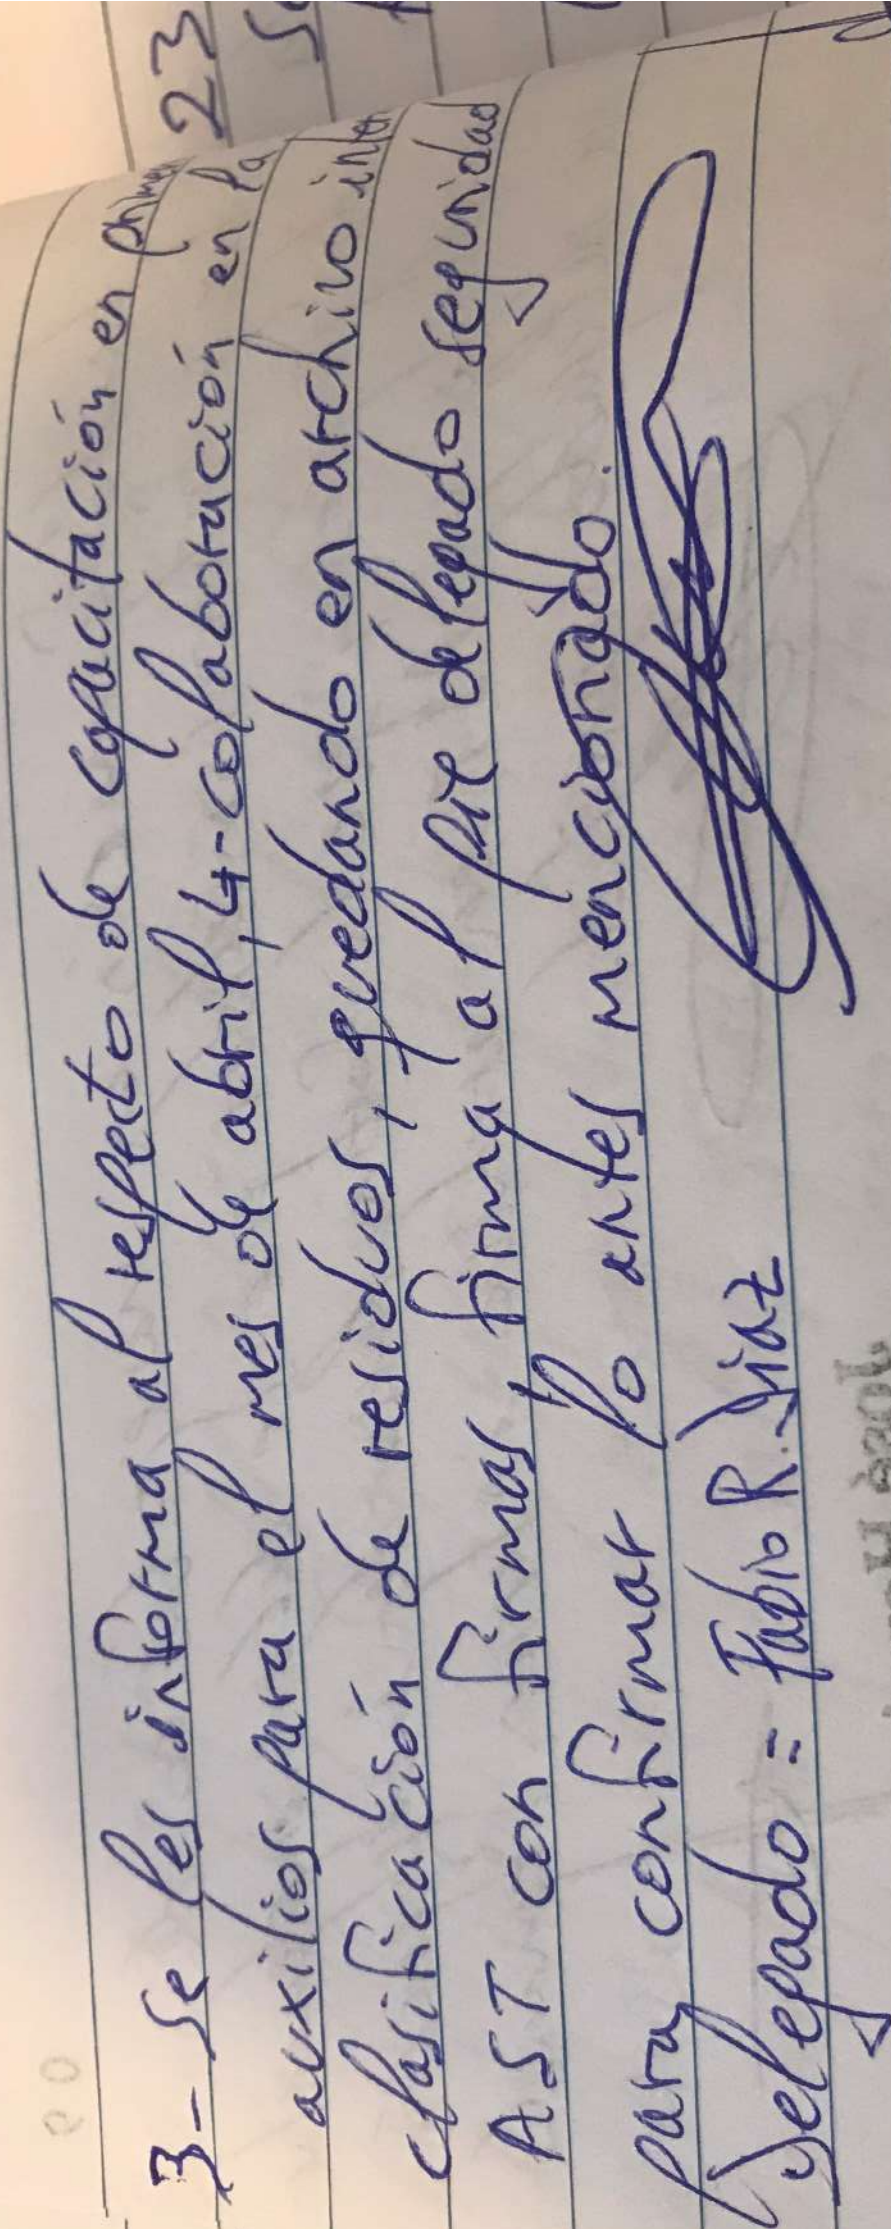 3- Se les informa al respecto de capacitación en prime
auxilios para el mes de abril, 4- colaboración en la
clasificación de residuos, quedando en archivo inter
AST con firmas, firma al pie delegado seguridad
para confirmar lo antes mencionado.
Delegado = Fabio R. Diaz
José
23